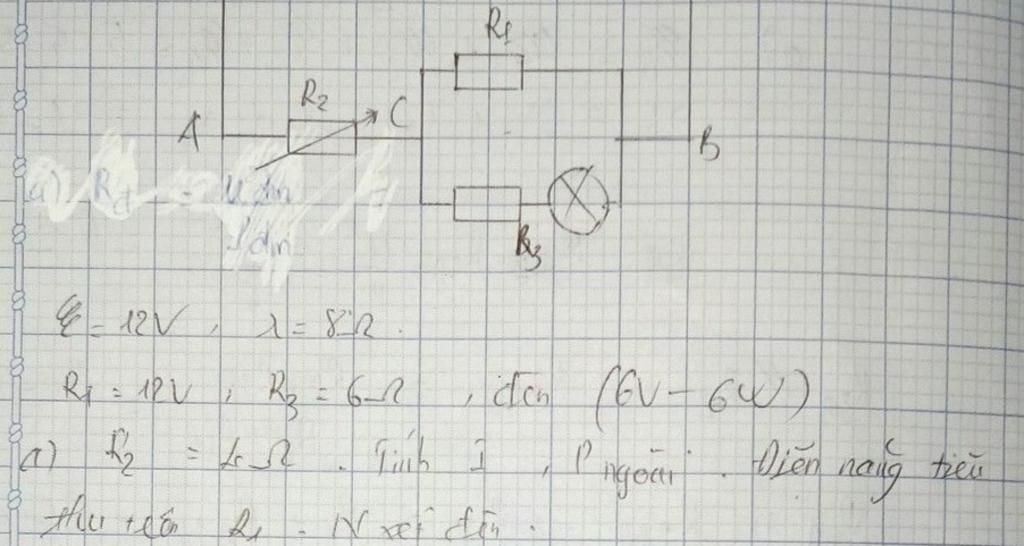 R1
R2
A
C
B
a) Rđ = Uđm
Iđm
R3
ℰ = 12V, r = 8Ω.
R1 = 12V, R3 = 6Ω, đèn (6V - 6W)
a) R2 = 4Ω. Tính I, P ngoài. Điện năng tiêu
thụ trên R1. N xét đèn.